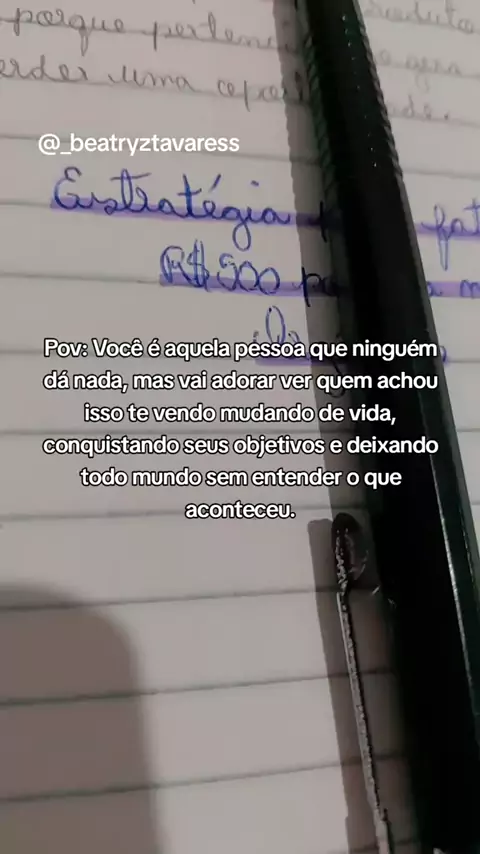 porque perten
erder uma
@_beatryztavaress
Estratégia fat
R$900
Pov: Você é aquela pessoa que ninguém
dá nada, mas vai adorar ver quem achou
isso te vendo mudando de vida,
conquistando seus objetivos e deixando
todo mundo sem entender o que
aconteceu.